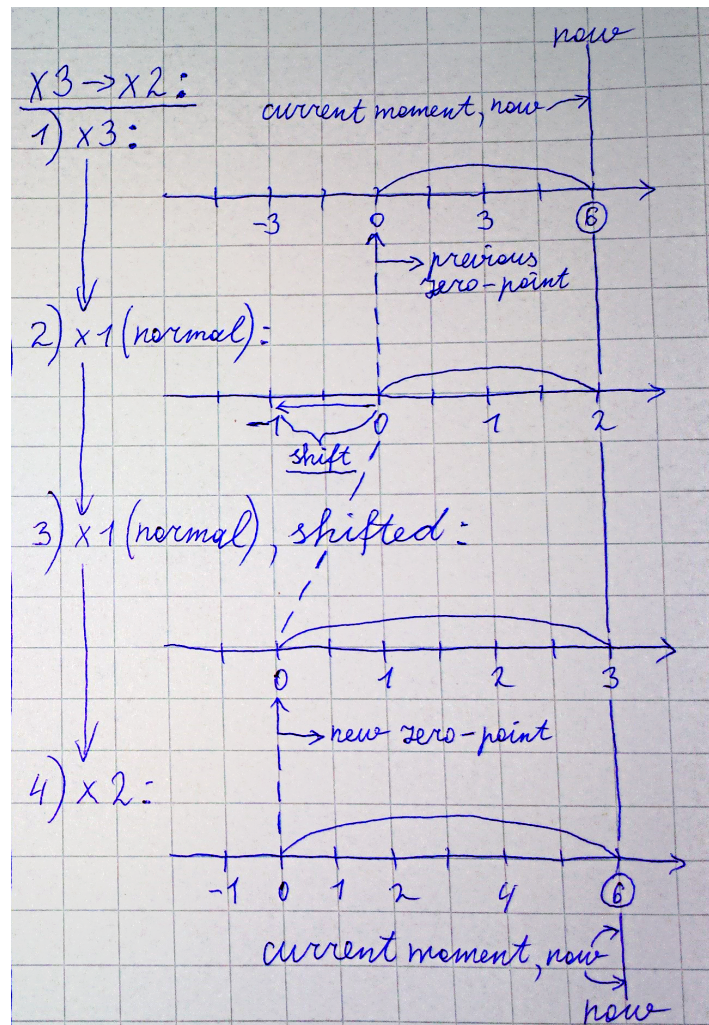 now
x3→x2:
current moment, now→
1) x3:
-3 0 3 6
previous
zero-point
2) x1 (normal):
-1 0 1 2
shift
3) x1 (normal), shifted:
0 1 2 3
new zero-point
4) x2:
-1 0 1 2 4 6
current moment, now
now